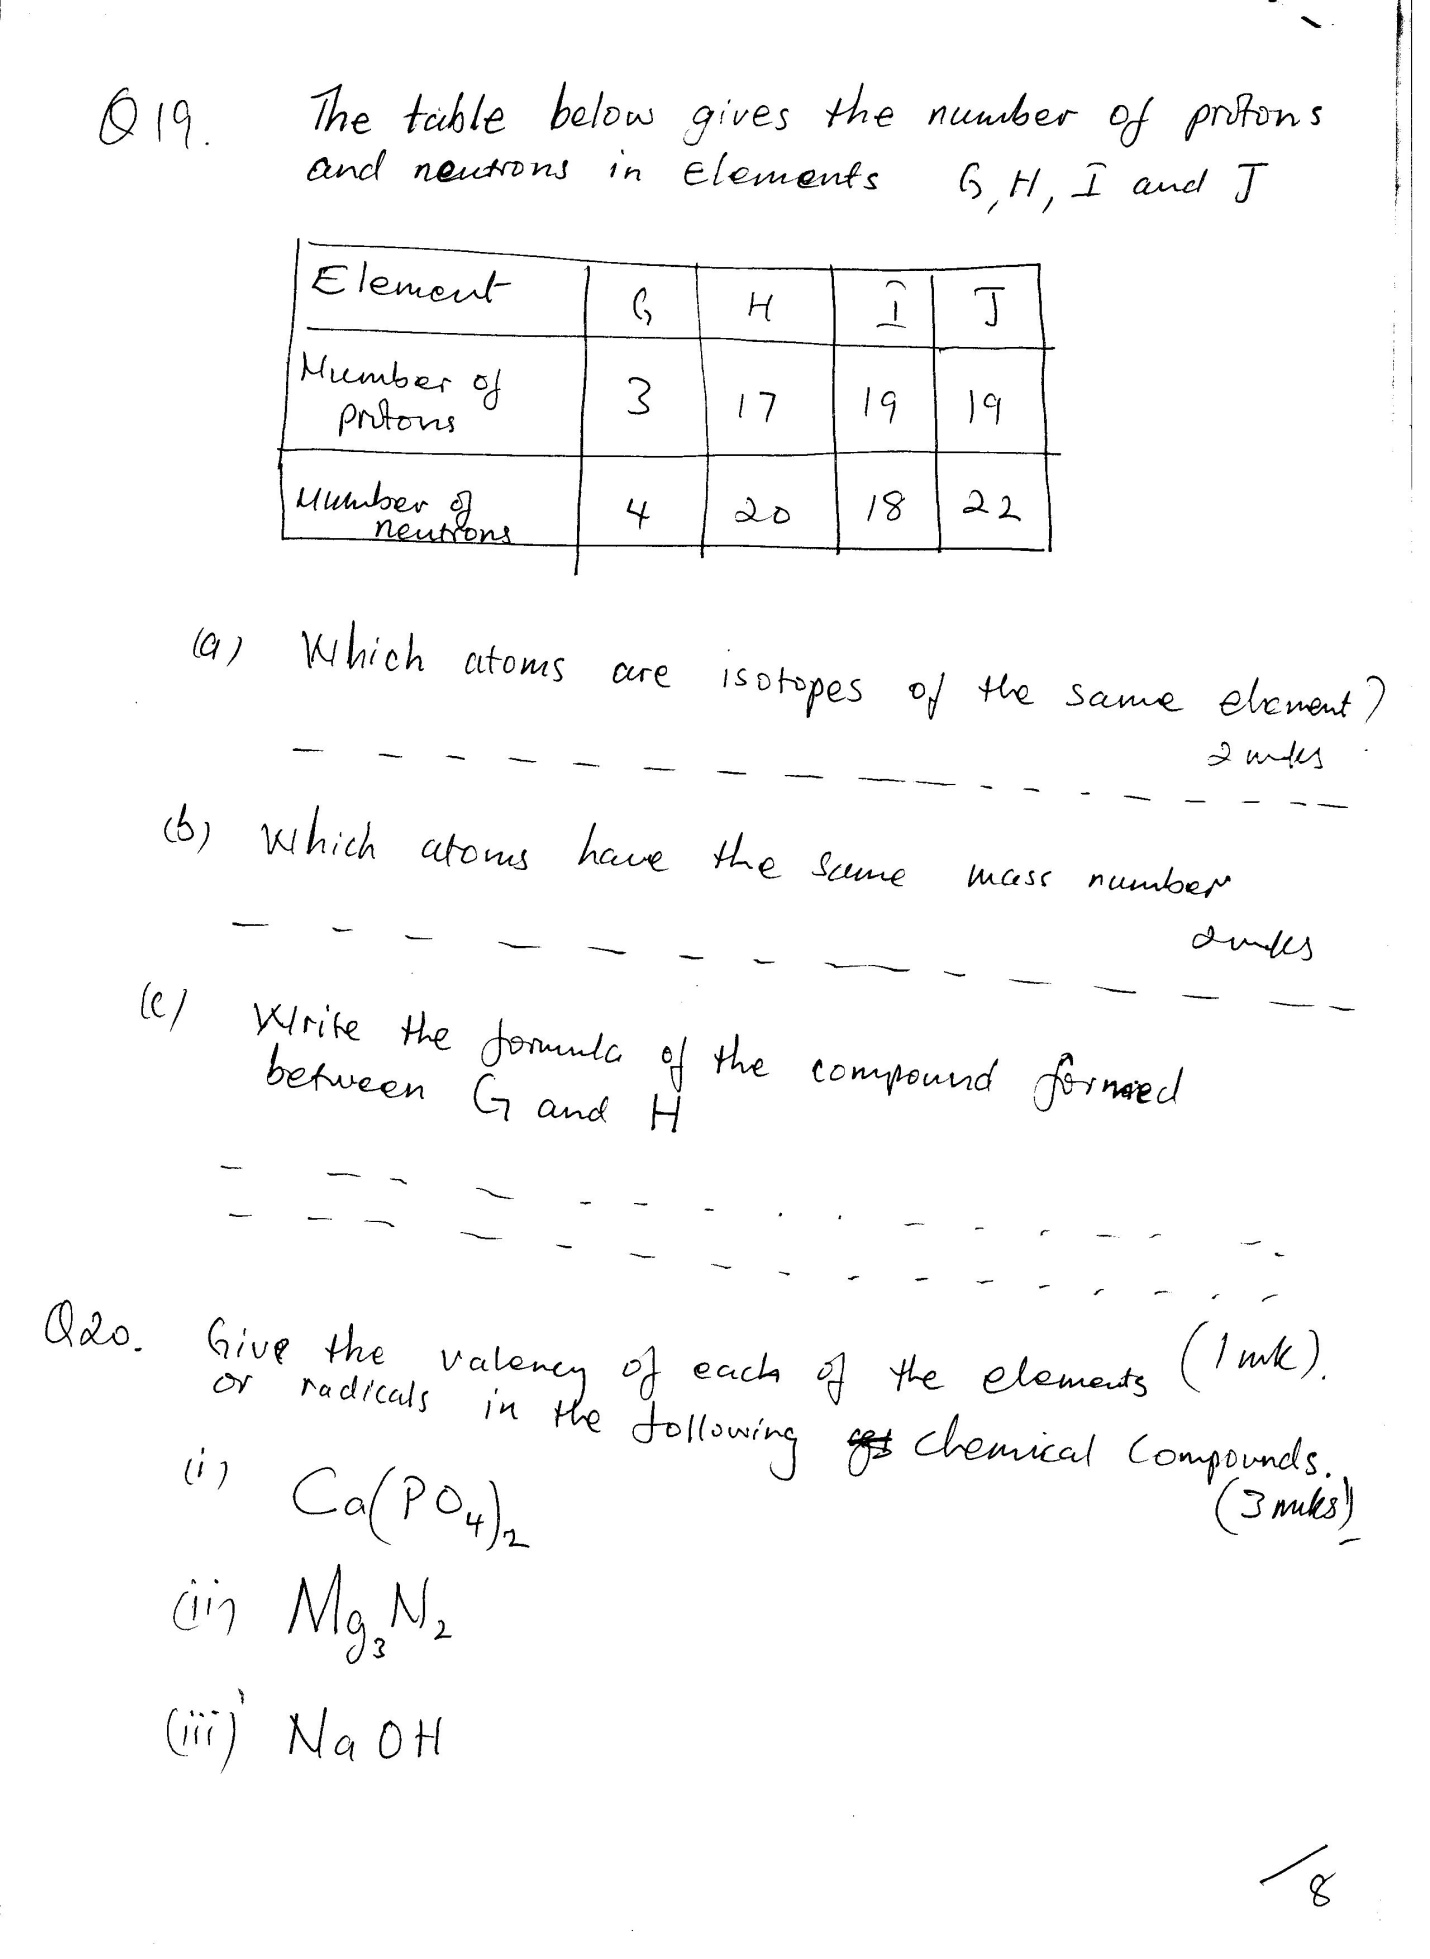 Q19. The table below gives the number of protons
and neutrons in Elements G, H, I and J
Element G H I J
Number of protons 3 17 19 19
Number of neutrons 4 20 18 22
(a) Which atoms are isotopes of the same element?
2 mks
(b) Which atoms have the same mass number
2mks
(c) Write the formula of the compound formed
between G and H
(1 mk).
Q20. Give the valency of each of the elements
or radicals in the following chemical compounds.
(3 mks)
(i) Ca(PO4)2
(ii) Mg3N2
(iii) NaOH
/8